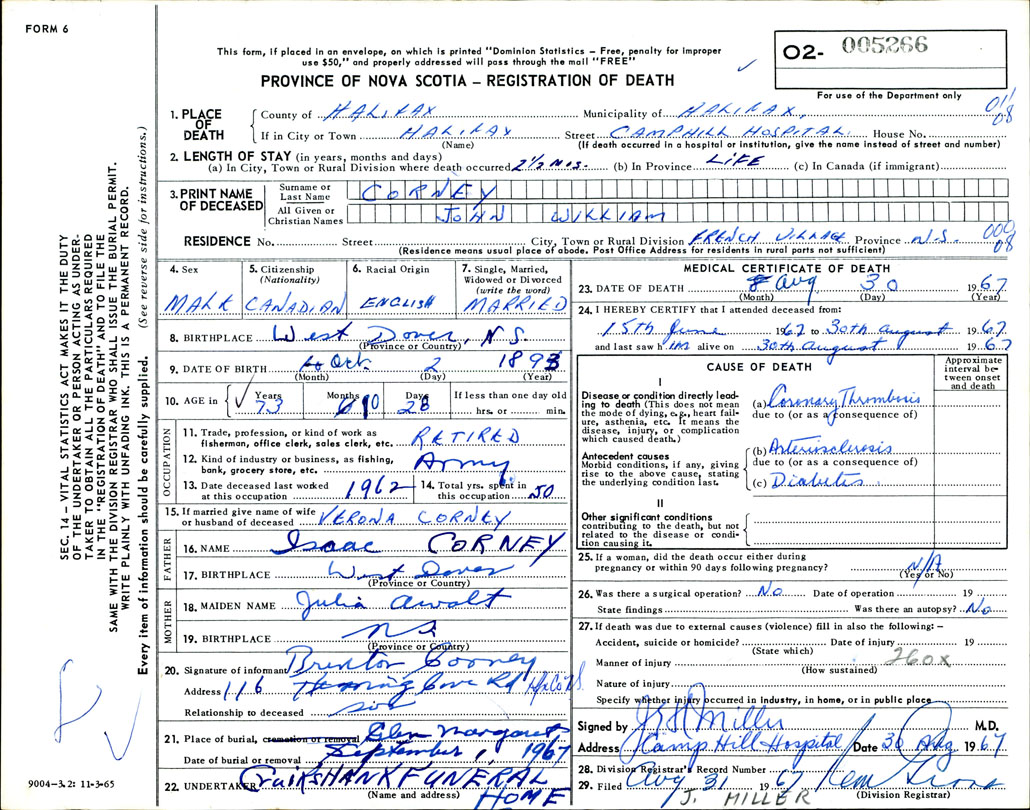 FORM 6
This form, if placed in an envelope, on which is printed "Dominion Statistics – Free, penalty for improper
use $50," and properly addressed will pass through the mail "FREE"
PROVINCE OF NOVA SCOTIA – REGISTRATION OF DEATH
02- 005266
For use of the Department only
SEC. 14 – VITAL STATISTICS ACT MAKES IT THE DUTY
OF THE UNDERTAKER OR PERSON ACTING AS UNDER-
TAKER TO OBTAIN ALL THE PARTICULARS REQUIRED
IN THE "REGISTRATION OF DEATH" AND TO FILE THE
SAME WITH THE DIVISION REGISTRAR WHO SHALL ISSUE THE BURIAL PERMIT.
WRITE PLAINLY WITH UNFADING INK. THIS IS A PERMANENT RECORD.
Every item of information should be carefully supplied. (See reverse side for instructions.)
1. PLACE OF DEATH
County of HALIFAX Municipality of HALIFAX, 011
08
If in City or Town HALIFAX Street CAMPHILL HOSPITAL House No.
(Name) (If death occurred in a hospital or institution, give the name instead of street and number)
2. LENGTH OF STAY (in years, months and days)
(a) In City, Town or Rural Division where death occurred 2 1/2 MOS. (b) In Province LIFE (c) In Canada (if immigrant)
3. PRINT NAME OF DECEASED
Surname or Last Name CORNEY
All Given or Christian Names JOHN WILLIAM
RESIDENCE No. Street City, Town or Rural Division FRENCH VILLAGE Province N.S. 000
08
(Residence means usual place of abode. Post Office Address for residents in rural parts not sufficient)
4. Sex MALE
5. Citizenship (Nationality) CANADIAN
6. Racial Origin ENGLISH
7. Single, Married, Widowed or Divorced (write the word) MARRIED
8. BIRTHPLACE West Dover, N.S.
(Province or Country)
9. DATE OF BIRTH Oct. 2 1893
(Month) (Day) (Year)
10. AGE in Years 73 Months 10 Days 28 If less than one day old
hrs. or min.
OCCUPATION
11. Trade, profession, or kind of work as fisherman, office clerk, sales clerk, etc. RETIRED
12. Kind of industry or business, as fishing, bank, grocery store, etc. Army
13. Date deceased last worked at this occupation 1962
14. Total yrs. spent in this occupation 50
15. If married give name of wife or husband of deceased VERONA CORNEY
FATHER
16. NAME Isaac CORNEY
17. BIRTHPLACE West Dover
(Province or Country)
MOTHER
18. MAIDEN NAME Julia Awalt
19. BIRTHPLACE NS
(Province or Country)
20. Signature of informant Brenton Cooney
Address 116 Herring Cove Rd Hfx Co N.S.
Relationship to deceased son
21. Place of burial, cremation or removal Glen Margaret
Date of burial or removal September 1, 1967
22. UNDERTAKER CruikSHANK FUNERAL
HOME
(Name and address)
9004-3.2: 11-3-65
MEDICAL CERTIFICATE OF DEATH
23. DATE OF DEATH Aug 30 1967
(Month) (Day) (Year)
24. I HEREBY CERTIFY that I attended deceased from:
15th June 1967 to 30th August 1967
and last saw him alive on 30th August 1967
CAUSE OF DEATH
Approximate interval between onset and death
I
Disease or condition directly leading to death (This does not mean the mode of dying, e.g., heart failure, asthenia, etc. It means the disease, injury, or complication which caused death.)
(a) Coronary Thrombosis
due to (or as a consequence of)
Antecedent causes
Morbid conditions, if any, giving rise to the above cause, stating the underlying condition last.
(b) Arteriosclerosis
due to (or as a consequence of)
(c) Diabetes
II
Other significant conditions contributing to the death, but not related to the disease or condition causing it.
25. If a woman, did the death occur either during pregnancy or within 90 days following pregnancy? N/A
(Yes or No)
26. Was there a surgical operation? No Date of operation 19
State findings Was there an autopsy? No
27. If death was due to external causes (violence) fill in also the following: –
Accident, suicide or homicide? Date of injury 19
(State which)
Manner of injury 260X
(How sustained)
Nature of injury
Specify whether injury occurred in industry, in home, or in public place
Signed by Miller M.D.
Address Camp Hill Hospital Date 30 Aug 1967
28. Division Registrar's Record Number
29. Filed Aug 31 1967
(Division Registrar)
J. MILLER